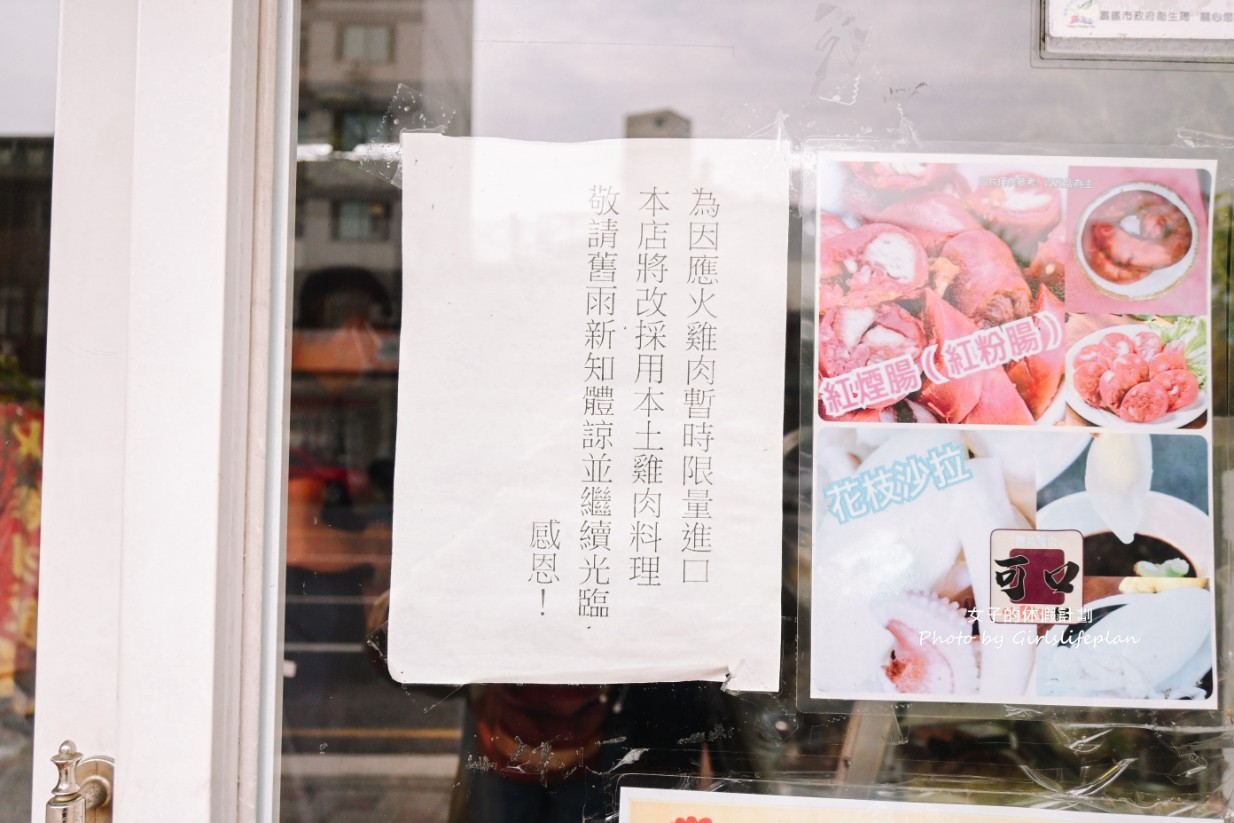 為因應火雞肉暫時限量進口
本店將改採用本土雞肉料理
敬請舊雨新知體諒並繼續光臨
感恩！
紅煙腸（紅粉腸）
花枝沙拉
可口
女子的休假計劃
Photo by Girlslifeplan